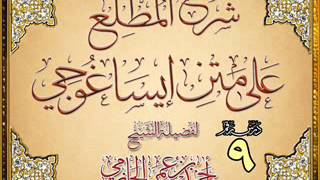 شرح المطلع
على متن إيساغوجي
لفضيلة الشيخ
درس رقم
٩
الحازمي